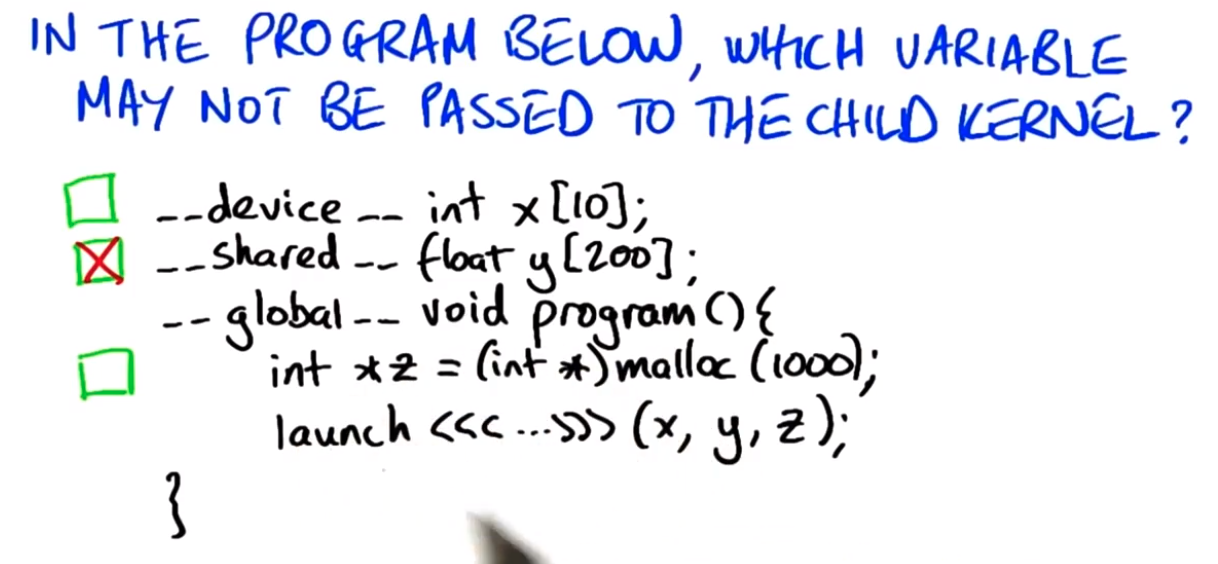 IN THE PROGRAM BELOW, WHICH VARIABLE
MAY NOT BE PASSED TO THE CHILD KERNEL?
--device-- int x[10];
--shared-- float y[200];
--global-- void program(){
int *z = (int *)malloc(1000);
launch <<<...>>> (x, y, z);
}